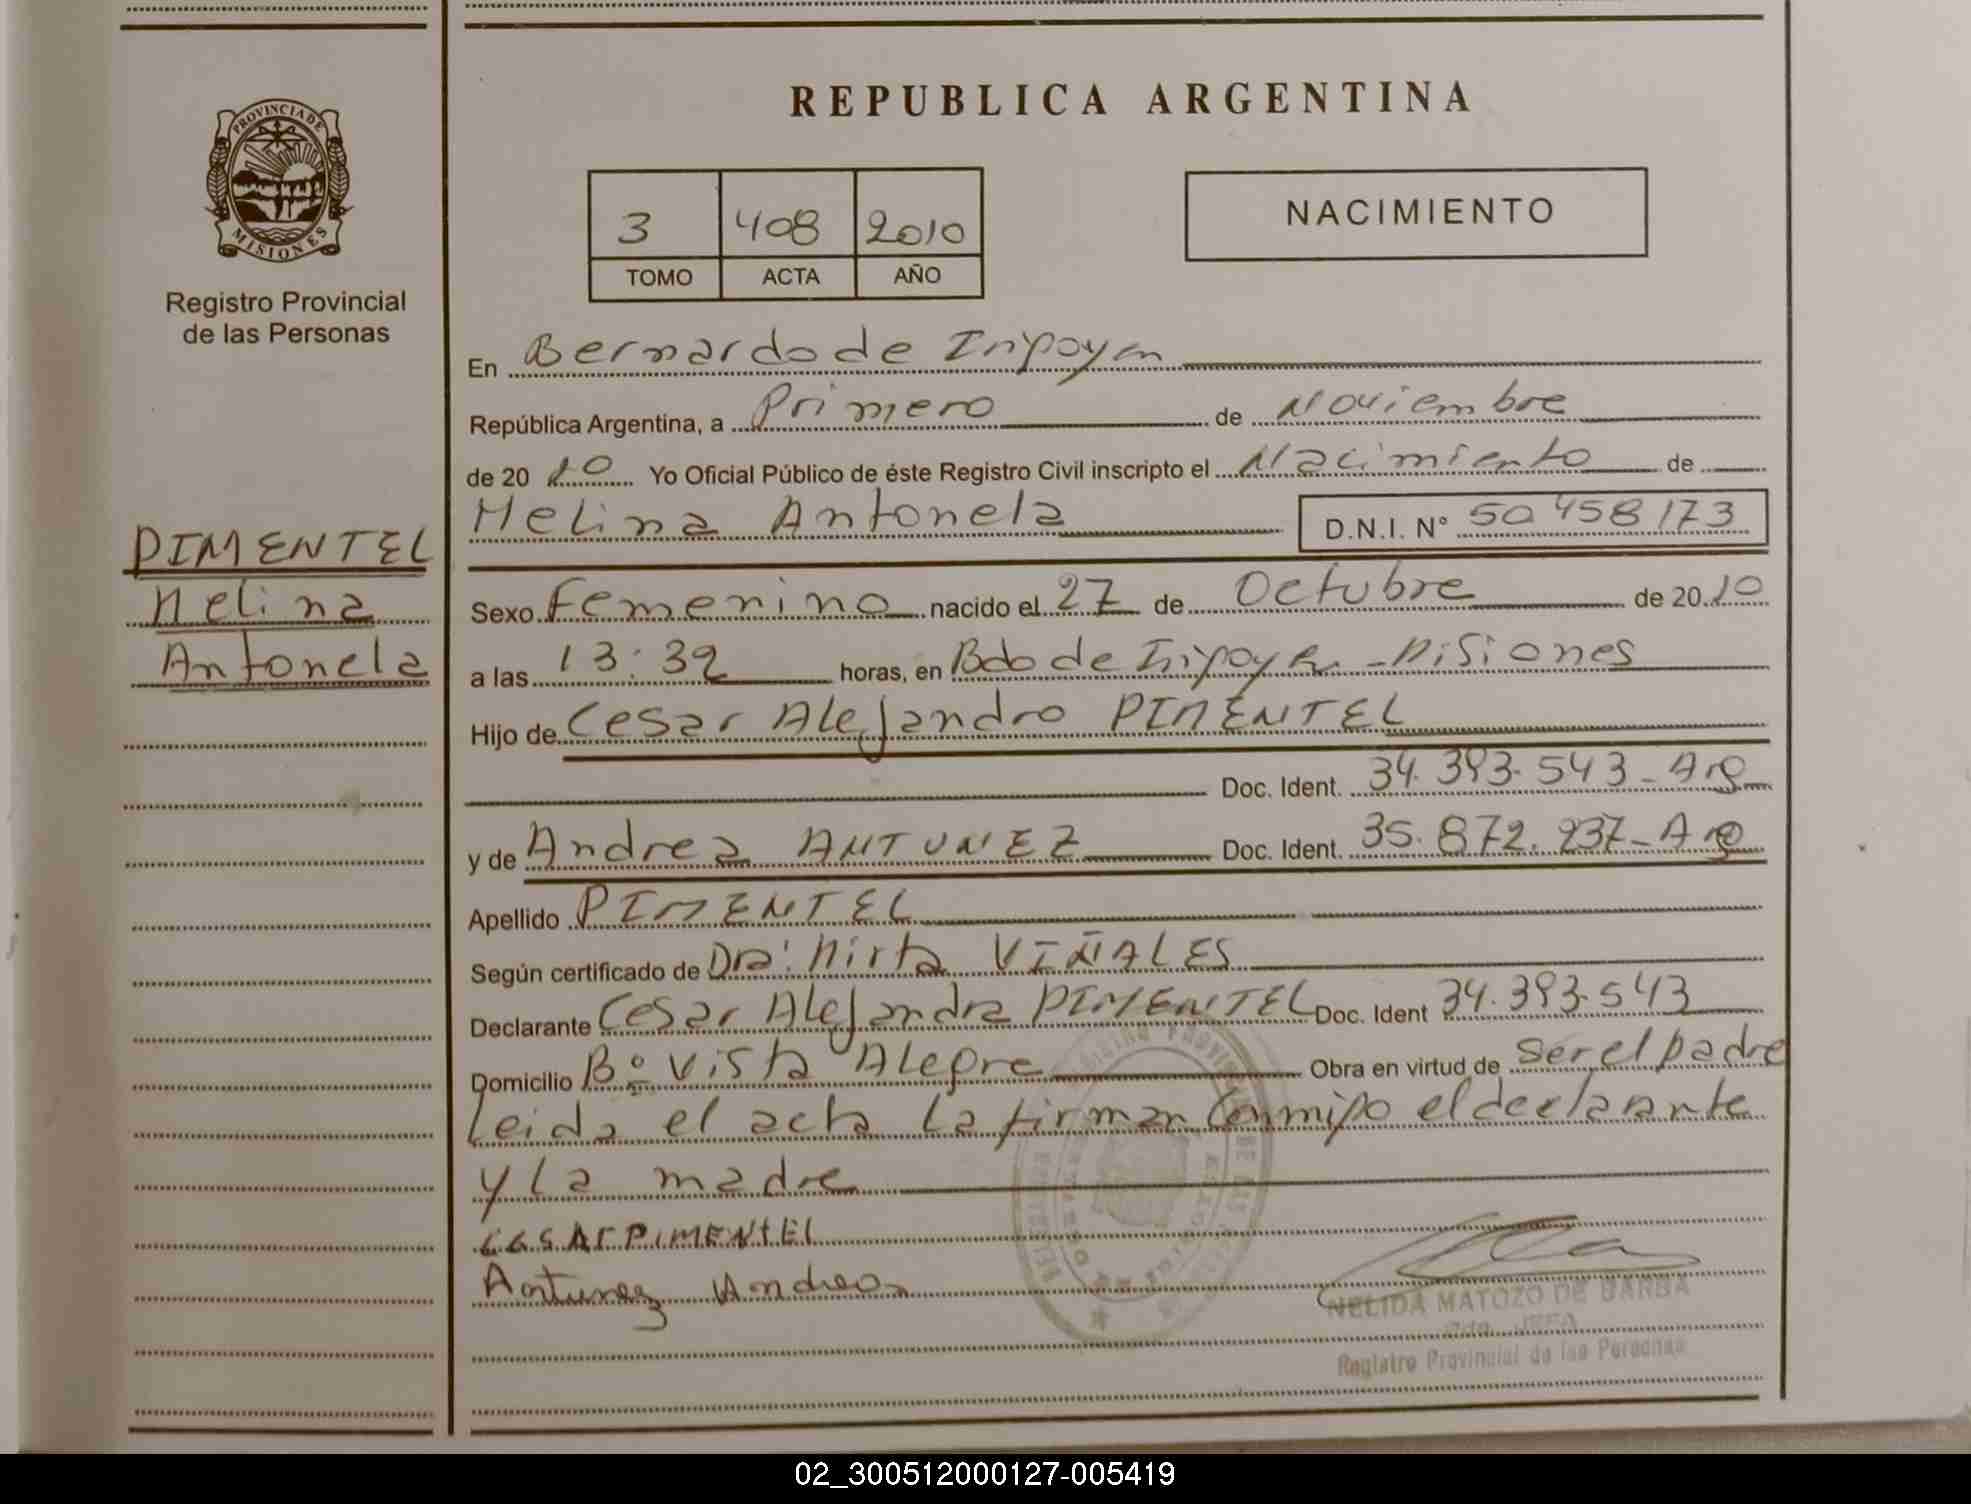 REPUBLICA ARGENTINA
PROVINCIA DE MISIONES
Registro Provincial
de las Personas
3 408 2010
TOMO ACTA AÑO
NACIMIENTO
En Bernardo de Irigoyen
República Argentina, a Primero de Noviembre
de 20 10 Yo Oficial Público de éste Registro Civil inscripto el Nacimiento de
Melina Antonela D.N.I. N° 50458173
PIMENTEL
Melina
Antonela
Sexo Femenino nacido el 27 de Octubre de 20 10
a las 13:32 horas, en Bdo de Irigoyen - Misiones
Hijo de Cesar Alejandro PIMENTEL
Doc. Ident. 34.393.543 - Arg
y de Andrea ANTUNEZ Doc. Ident. 35.872.237 - Arg
Apellido PIMENTEL
Según certificado de Dra: Mirta VIÑALES
Declarante Cesar Alejandra PIMENTEL Doc. Ident 34.393.543
Domicilio B° Vista Alegre Obra en virtud de ser el padre
Leida el acta La firman Conmigo el declarante
y La madre
CESAR PIMENTEL
Antunez Andrea
NELIDA MATOZO DE BARBA
JEFA
Registro Provincial de las Personas
02_300512000127-005419